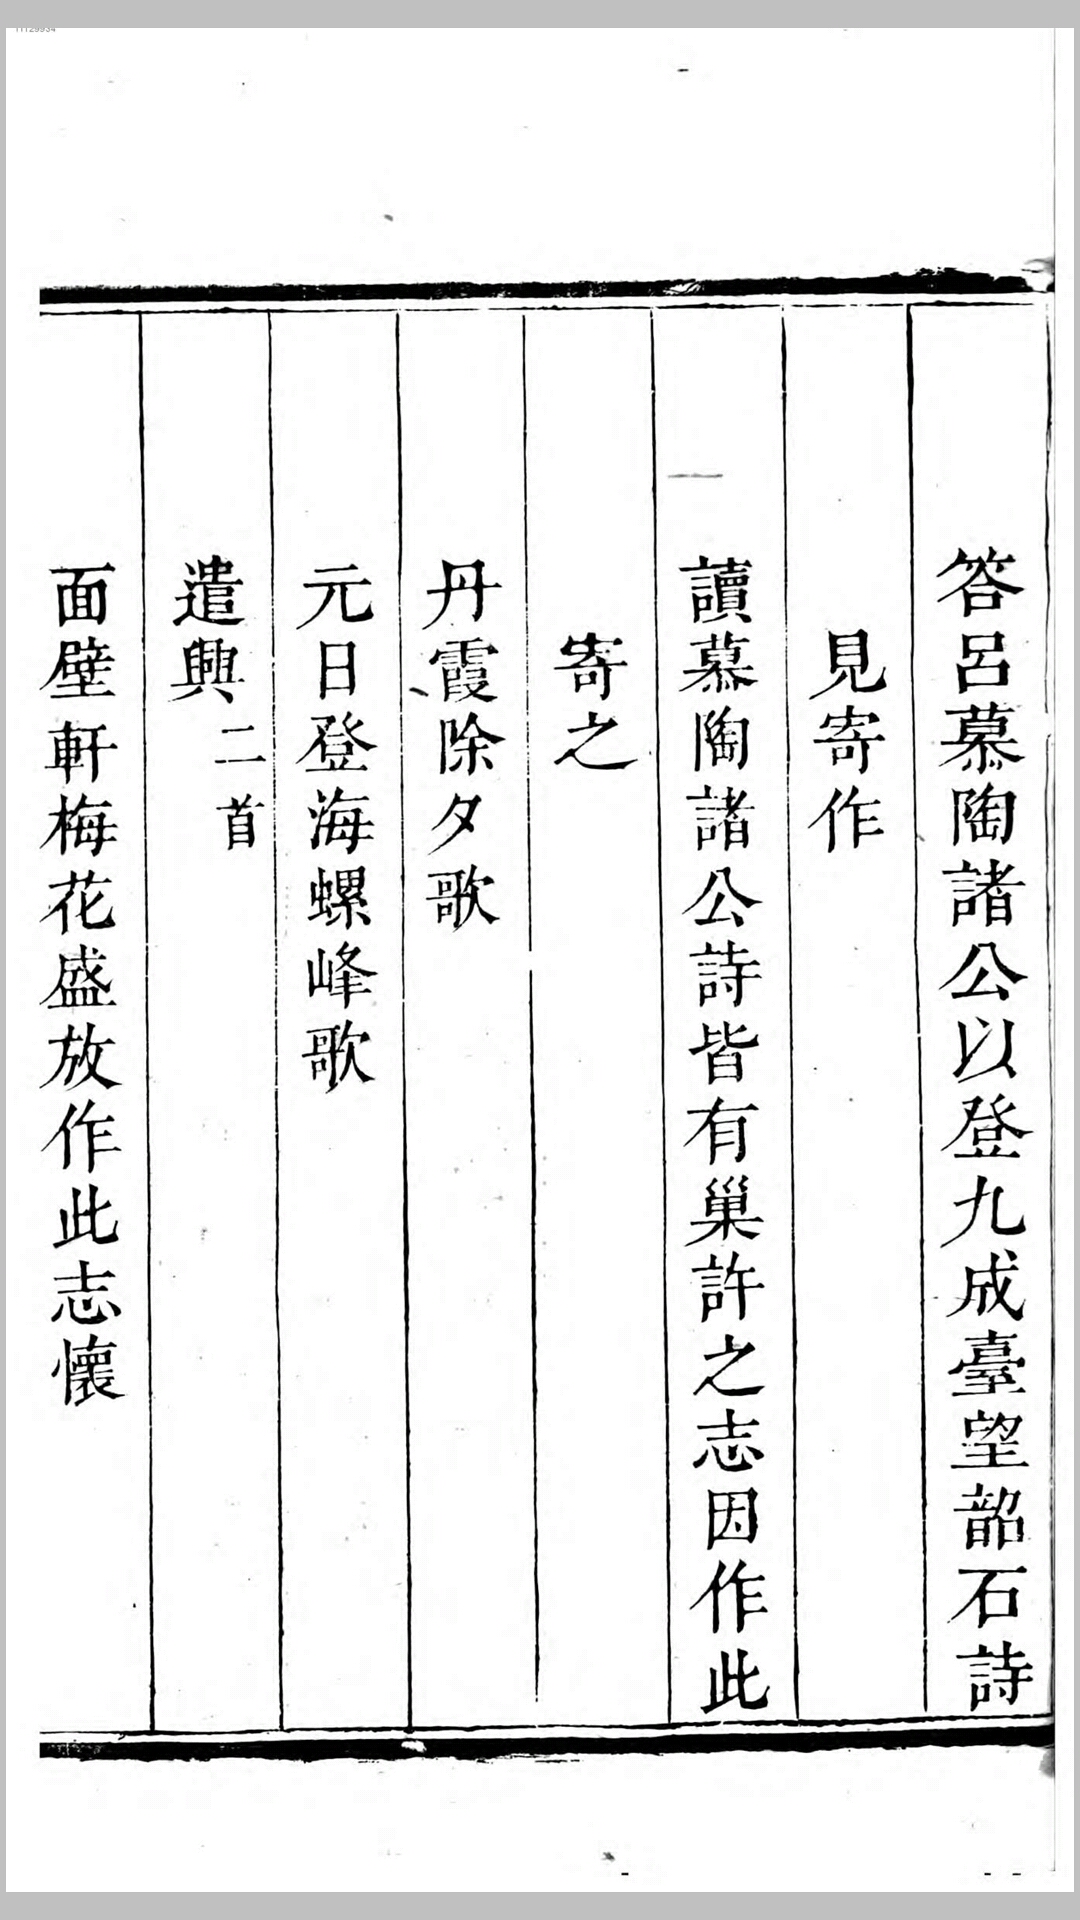 答呂慕陶諸公以登九成臺望韶石詩
見寄作
讀慕陶諸公詩皆有巢許之志因作此
寄之
丹霞除夕歌
元日登海螺峰歌
遣興二首
面壁軒梅花盛放作此志懷